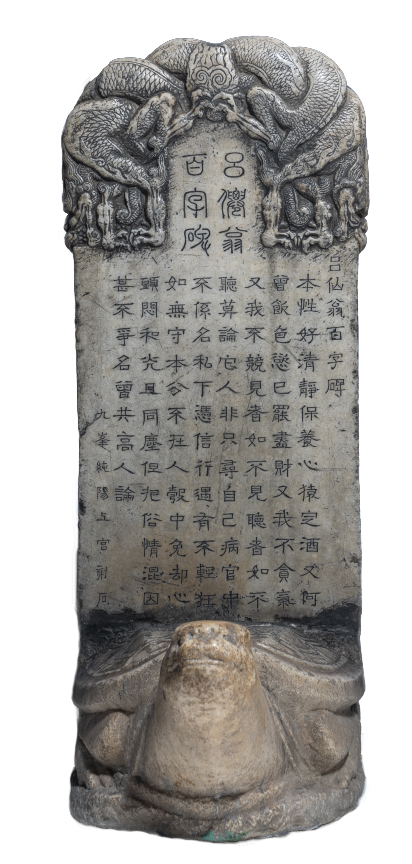 呂僊翁
百字碑
呂仙翁百字碑
本性好清靜保養心猿定酒又何
曾飲色慾已罷盡財又我不貪氣
又我不競見者如不見聽者如不
聽莫論它人非只尋自己病官中
不係名私下憑信行遇有不輕狂
如無守本分不在人彀中免却心
頭悶和光且同塵但把俗情混因
甚不爭名曾共高人論
九峯純陽上宮石